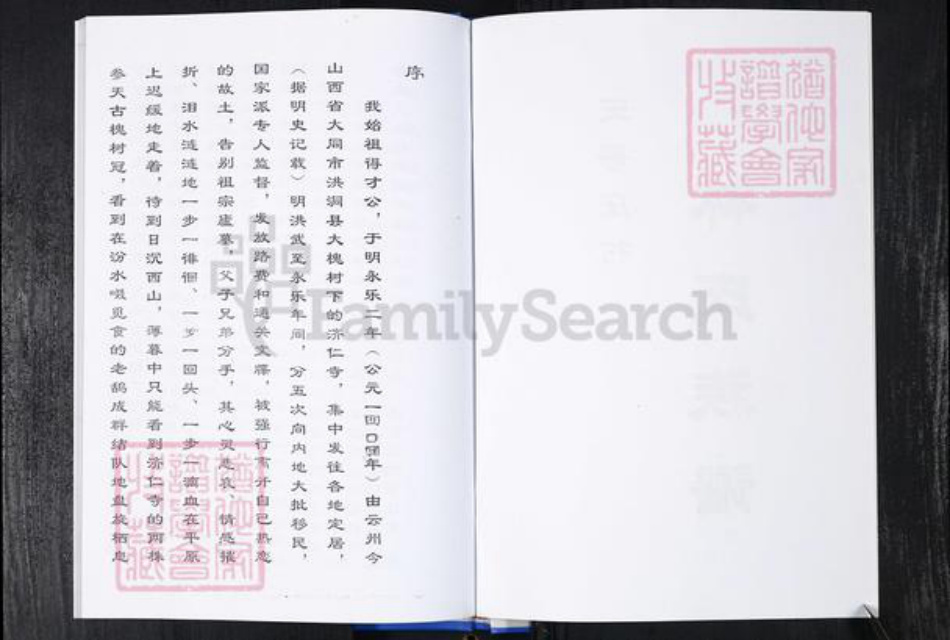 序
我始祖得才公，于明永乐二年（公元一四〇四年）由云州今
山西省大同市洪洞县大槐树下的济仁寺，集中发往各地定居，
（据明史记载）明洪武至永乐年间，分五次向内地大批移民，
国家派专人监督，发放路费和通关文牒，被强行离开自己热恋
的故土，告别祖宗庐墓，父子兄弟分手，其心灵悲哀、情感摧
折、泪水涟涟地一步一徘徊、一步一回头、一步一滴血在平原
上迟缓地走着，待到日沉西山，薄暮中只能看到济仁寺的两株
参天古槐树冠，看到在汾水啜觅食的老鸹成群结队地盘旋栖息
猶他家
譜學會
收藏
FamilySearch
猶他家
譜學會
收藏